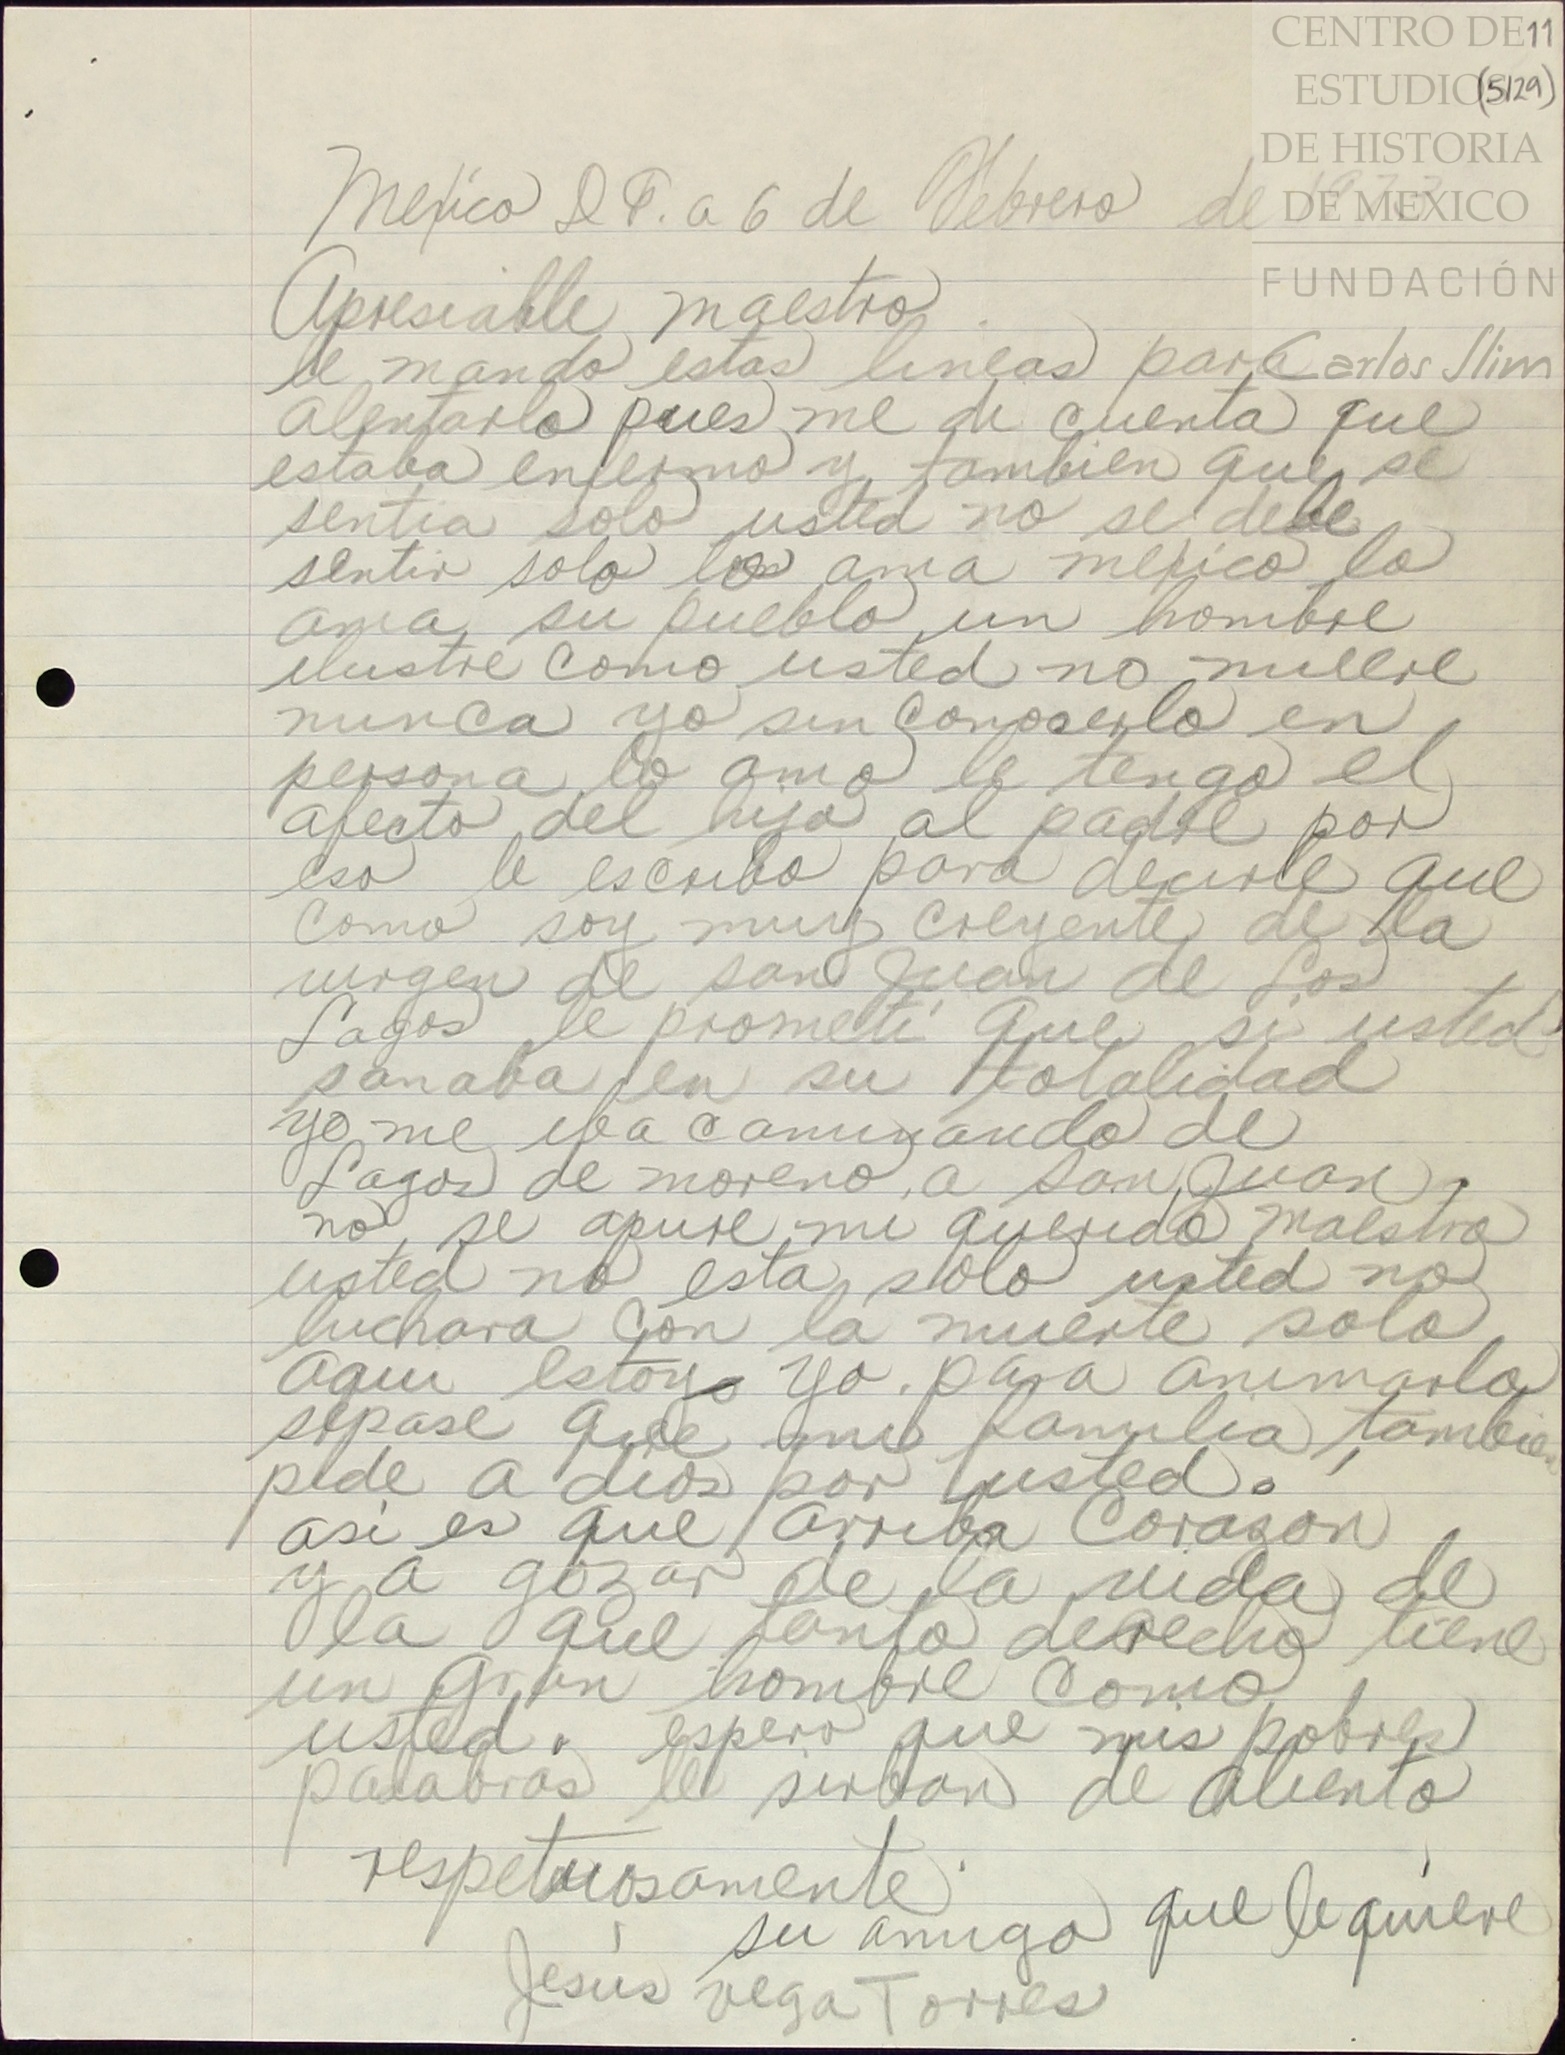 CENTRO DE 11
ESTUDIOS (5129)
DE HISTORIA
DE MEXICO
FUNDACIÓN
Carlos Slim
Mexico D F. a 6 de Febrero de
Apresiable maestro.
le mando estas lineas para
alentarlo pues me di cuenta que
estaba enfermo y tambien que se
sentia solo usted no se debe
sentir solo lo ama mexico lo
ama su pueblo un hombre
ilustre como usted no muere
nunca yo sin conoserlo en
persona lo amo le tengo el
afecto del hijo al padre por
eso le escribo para decirle que
como soy muy creyente de la
virgen de san Juan de Los
Lagos le prometi que si usted
sanaba en su totalidad
yo me iba caminando de
Lagos de moreno a san Juan.
no se apure mi querido maestro
usted no esta solo usted no
luchara con la muerte solo
aqui estoy yo para animarlo
sepase que mi familia tambien
pide a dios por usted.
asi es que arriba corazon
y a gozar de la vida de
la que tanto derecho tiene
un gran hombre como
usted. espero que mis pobres
palabras le sirban de aliento
respetuosamente
su amigo que le quiere
Jesús vega Torres